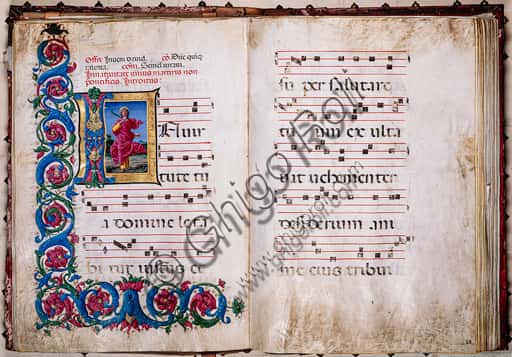 Offm Inveni david.
co Qui
com. Semel iuravi.
In natali unius martiris non
pontificis. Introitus.
In vir
tute tu
a domine leta
bi tur iustus et
su per salutare
tu um ex ulta
bit vehementer
desiderium ani
me eius tribui
Ghigo Roli
www.ghigoroli.com